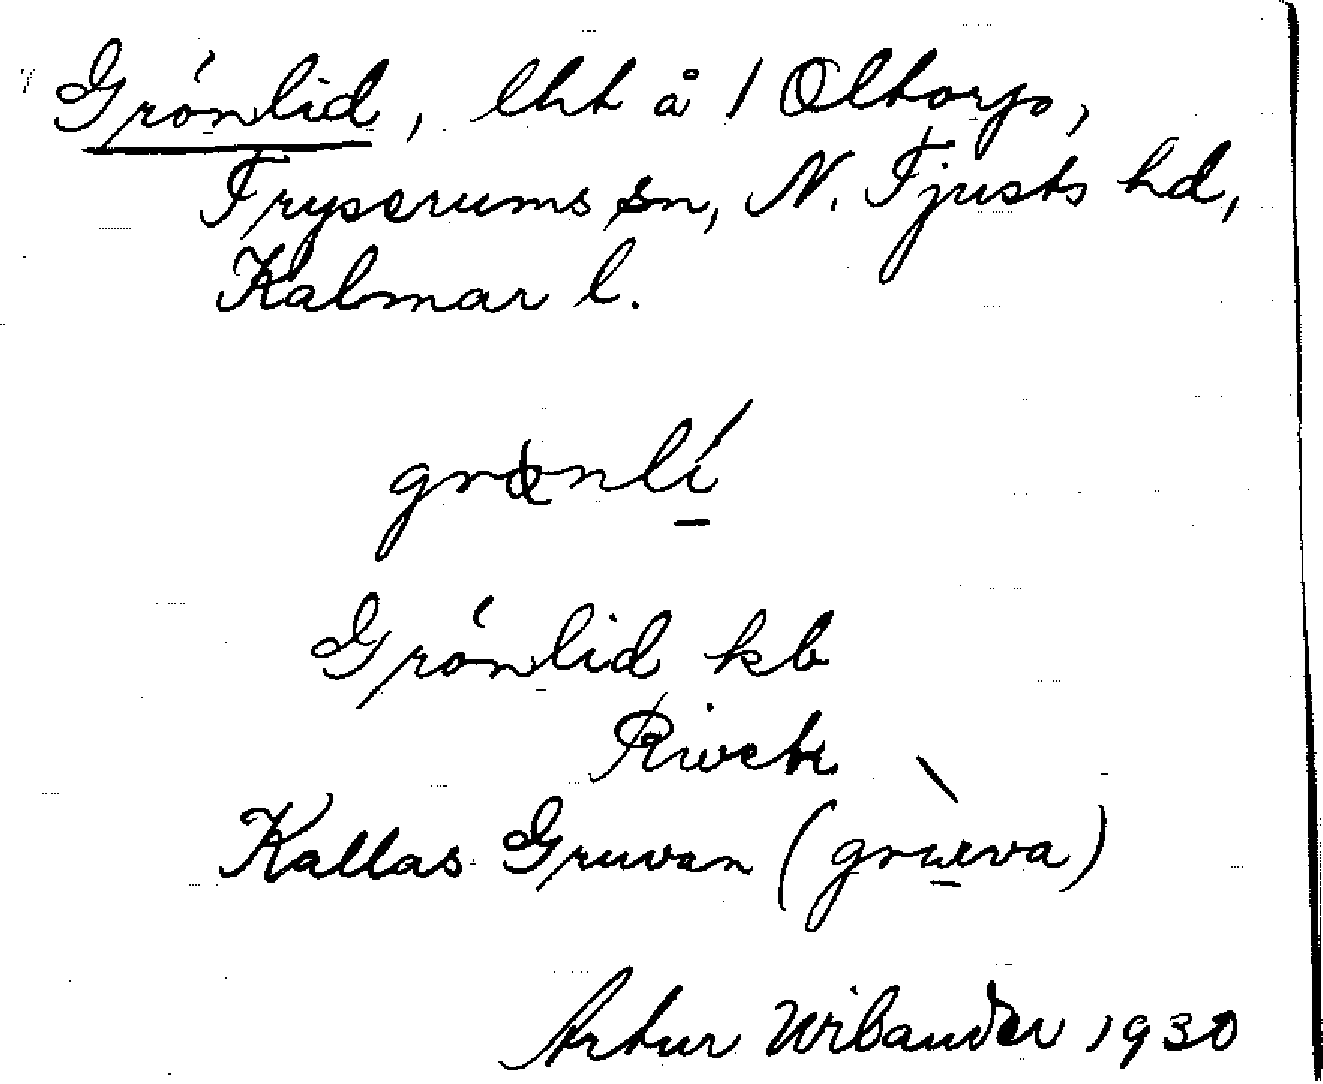 Grönlid, lht å 1 Oltorp,
Tryserums sn, N. Tjusts hd,
Kalmar l.
grønlí
Grönlid kb
Kallas Gruvan (
Artur Wibander 1930